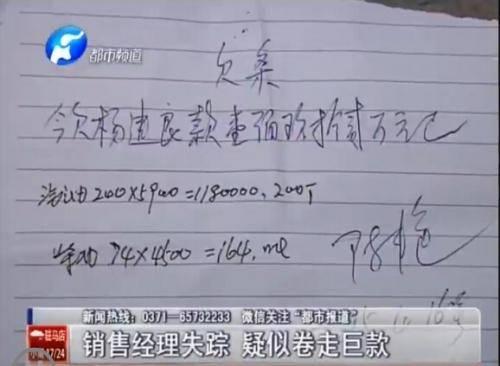 都市频道
欠条
今欠杨建良款壹佰玖拾贰万元
汽油 200×5900=1180000. 200T
×4500=164.
新闻热线：0371-65732233 微信关注"都市报道"
驻马店
17/24
销售经理失踪 疑似卷走巨款